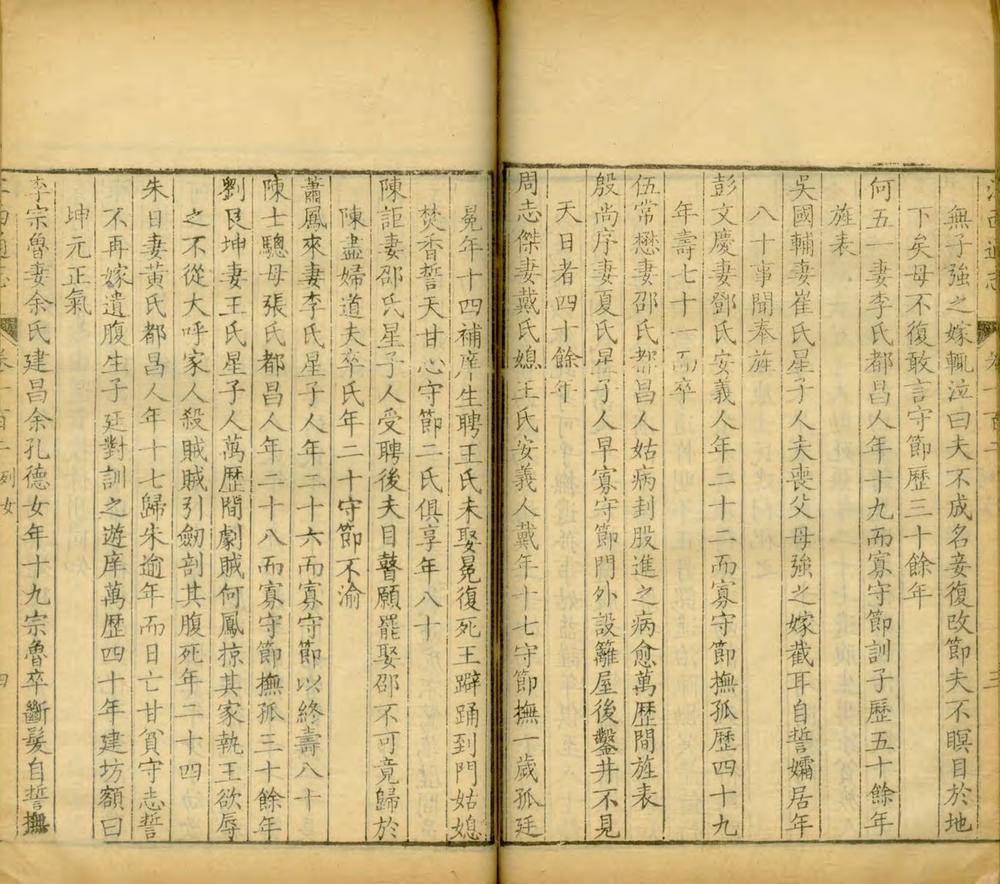 無子強之嫁輒泣曰夫不成名妾復改節夫不瞑目於地
下矣母不復敢言守節歷三十餘年
何五一妻李氏都昌人年十九而寡守節訓子歷五十餘年
旌表
吳國輔妻崔氏星子人夫喪父母強之嫁截耳自誓孀居年
八十事聞奉旌
彭文慶妻鄧氏安義人年二十二而寡守節撫孤歷四十九
年壽七十一而卒
伍常懋妻邵氏都昌人姑病刲股進之病愈萬歷間旌表
殷尚序妻夏氏星子人早寡守節門外設籬屋後鑿井不見
天日者四十餘年
周志傑妻戴氏媳王氏安義人戴年十七守節撫一歲孤廷
冕年十四補庠生聘王氏未娶冕復死王躃踊到門姑媳
焚香誓天甘心守節二氏俱享年八十
陳詎妻邵氏星子人受聘後夫目瞽願罷娶邵不可竟歸於
陳盡婦道夫卒氏年二十守節不渝
蕭鳳來妻李氏星子人年二十六而寡守節以終壽八十
陳士驄母張氏都昌人年二十八而寡守節撫孤三十餘年
劉艮坤妻王氏星子人萬歷間劇賊何鳳掠其家執王欲辱
之不從大呼家人殺賊賊引劒剖其腹死年二十四
朱日妻黃氏都昌人年十七歸朱逾年而日亡甘貧守志誓
不再嫁遺腹生子廷對訓之遊庠萬歷四十年建坊額曰
坤元正氣
李宗魯妻余氏建昌余孔德女年十九宗魯卒斷髮自誓撫
列女